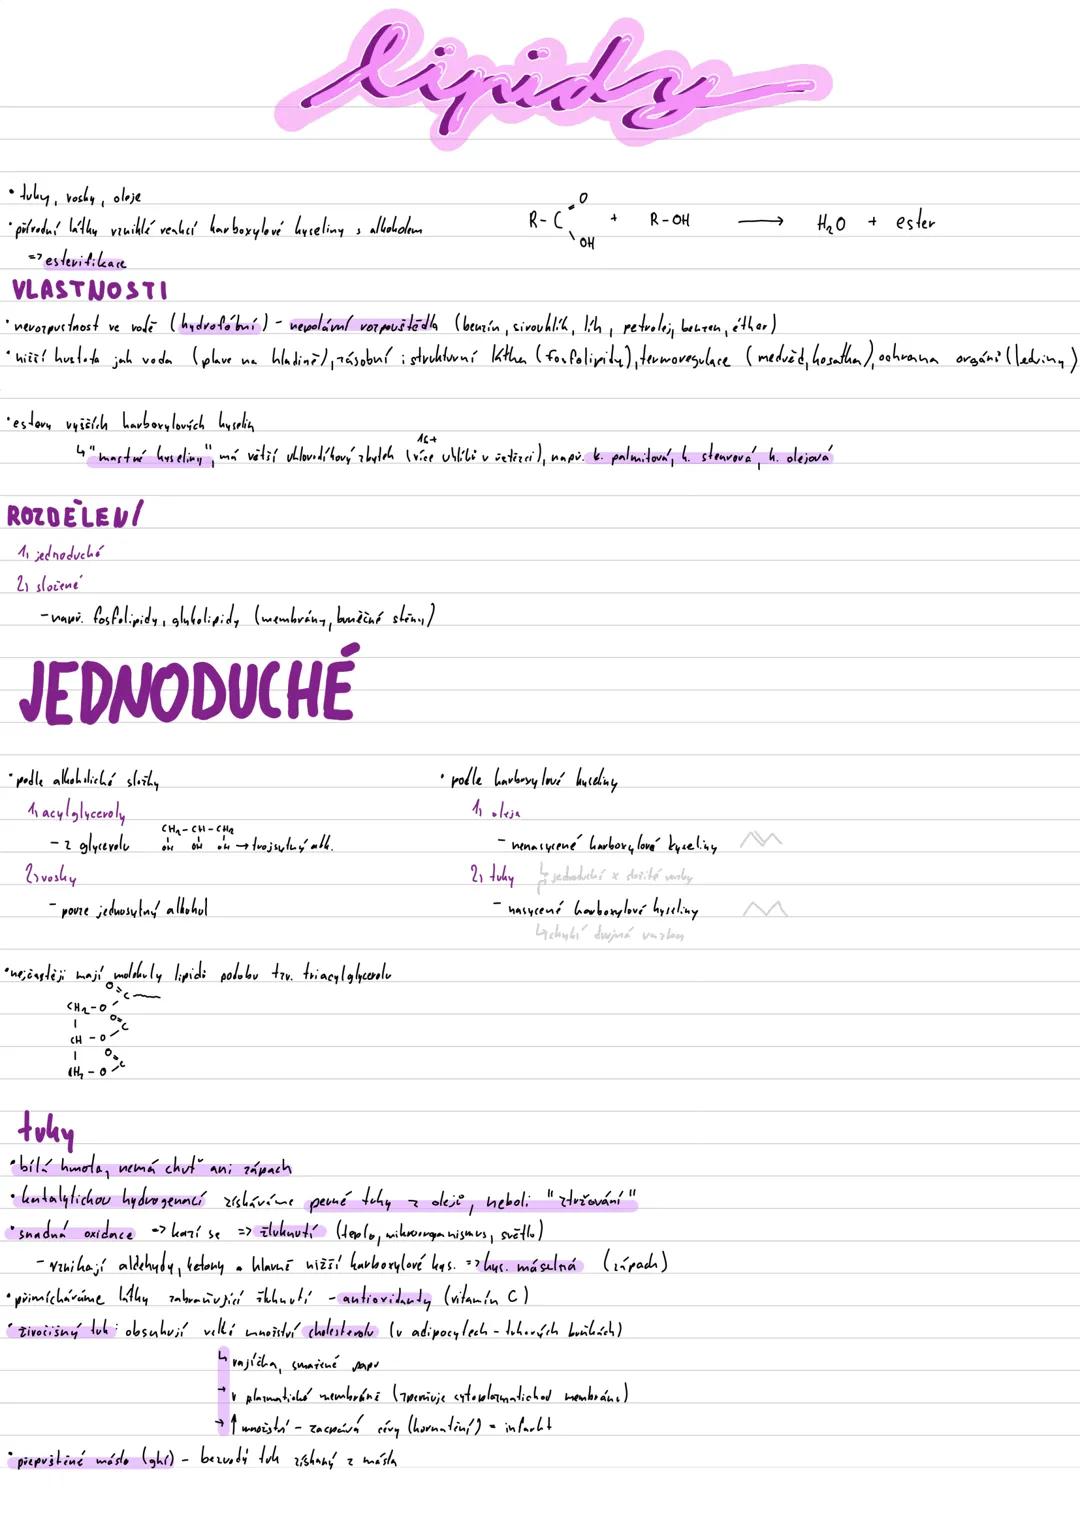 lipidy
• tuky, vosky, oleje
• přírodní látky vzniklé reakcí karboxylové kyseliny s alkoholem
=> esterifikace
R-C O OH + R-OH → H2O + ester
VLASTNOSTI
• nerozpustnost ve vodě (hydrofóbní) - nepolární rozpouštědla (benzín, sirouhlík, líh, petrolej, benzen, éther)
• nižší hustota jak voda (plave na hladině), zásobní i strukturní látka (fosfolipidy), termoregulace (medvěd, kosatka), ochrana orgánů (ledviny)
• estery vyšších karboxylových kyselin
16+
↳ "mastné kyseliny", má větší uhlovodíkový zbytek (více uhlíků v řetězci), např. k. palmitová, k. stearová, k. olejová
ROZDĚLENÍ
1, jednoduché
2, složené
- např. fosfolipidy, glykolipidy (membrány, buněčné stěny)
JEDNODUCHÉ
• podle alkoholické složky
1, acylglyceroly
CH2-CH-CH2
- z glycerolu OH OH OH → trojsytný alk.
2, vosky
- pouze jednosytný alkohol
• podle karboxylové kyseliny
1, oleje
- nenasycené karboxylové kyseliny
2, tuky ↳ jednoduché x složité vazby
- nasycené karboxylové kyseliny
↳ chybí dvojná vazba
• nejčastěji mají molekuly lipidů podobu tzv. triacylglycerolu
O=C
CH2-O
O=C
CH-O
O=C
CH2-O
tuky
• bílá hmota, nemá chuť ani zápach
• katalytickou hydrogenací získáváme pevné tuky z olejů, neboli "ztužování"
• snadná oxidace => kazí se => žluknutí (teplo, mikroorganismus, světlo)
- vznikají aldehydy, ketony a hlavně nižší karboxylové kys. => kys. máselná (zápach)
• přimícháváme látky zabraňující žluknutí - antioxidanty (vitamín C)
• živočišný tuk: obsahují velké množství cholesterolu (v adipocytech - tukových buňkách)
↳ vajíčka, smažené
→ v plazmatické membráně (zpevňuje cytoplazmatickou membránu)
→ ↑ množství - zacpává cévy (kornatění) = infarkt
• přepuštěné máslo (ghí) - bezvodý tuk získaný z másla